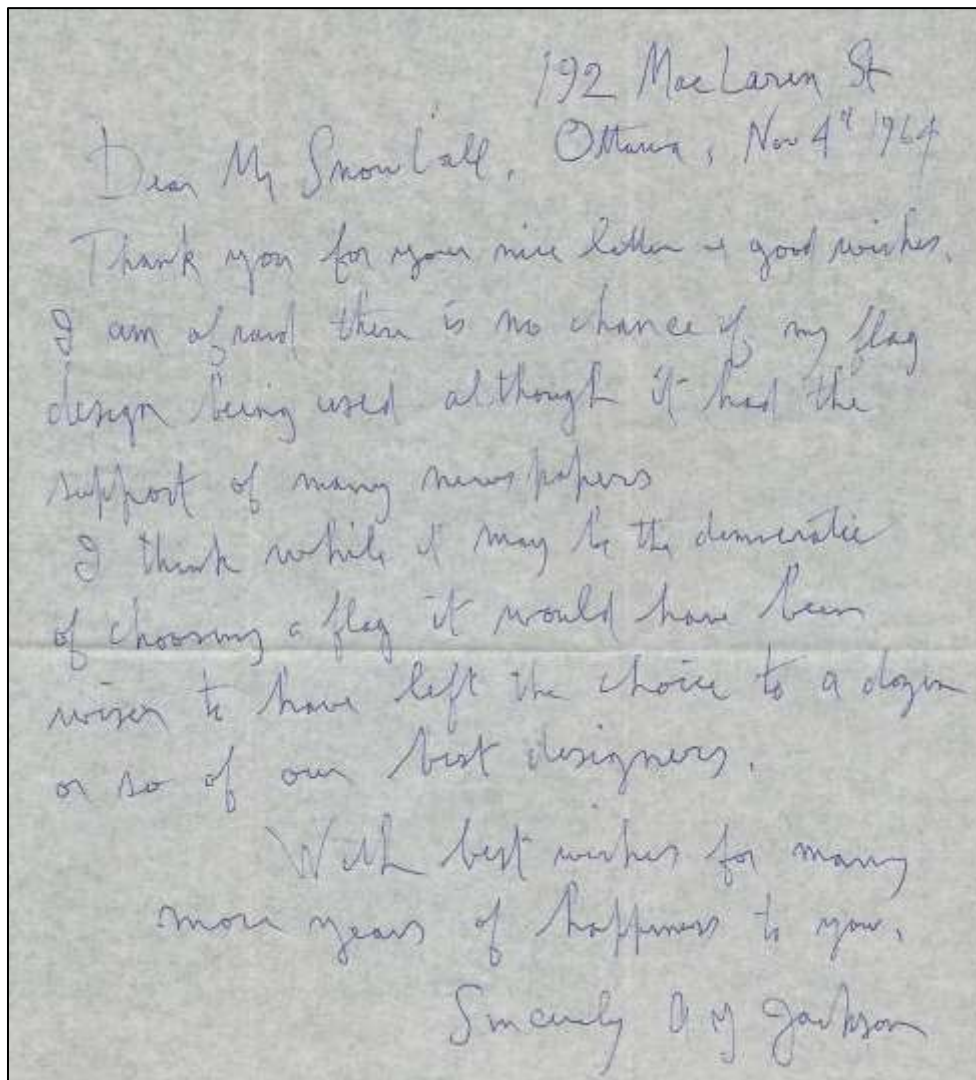 192 MacLaren St
Ottawa, Nov 4th 1964
Dear Mr Snowball,
Thank you for your nice letter & good wishes.
I am afraid there is no chance of my flag
design being used although it had the
support of many newspapers
I think while it may be the democratic
of choosing a flag it would have been
wiser to have left the choice to a dozen
or so of our best designers.
With best wishes for many
more years of happiness to you.
Sincerely A Y Jackson